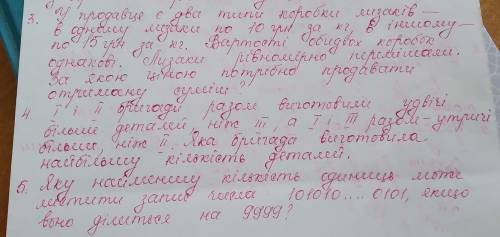 3. У продавце є два типи коробки лизаків –
в одному лизаки по 10 грн за кг, в іншому –
по 15 грн за кг. Вартості обидвох коробок
однакові. Лизаки рівномірно перемішали.
За якою ціною потрібно продавати
отриману суміш?
4. І і ІІ бригади разом виготовили удвічі
більше деталей, ніж ІІІ, а І і ІІІ разом – утричі
більше, ніж ІІ. Яка бригада виготовила
найбільшу кількість деталей.
5. Яку найменшу кількість одиниць може
містити запис числа 101010....0101, якщо
воно ділиться на 9999?